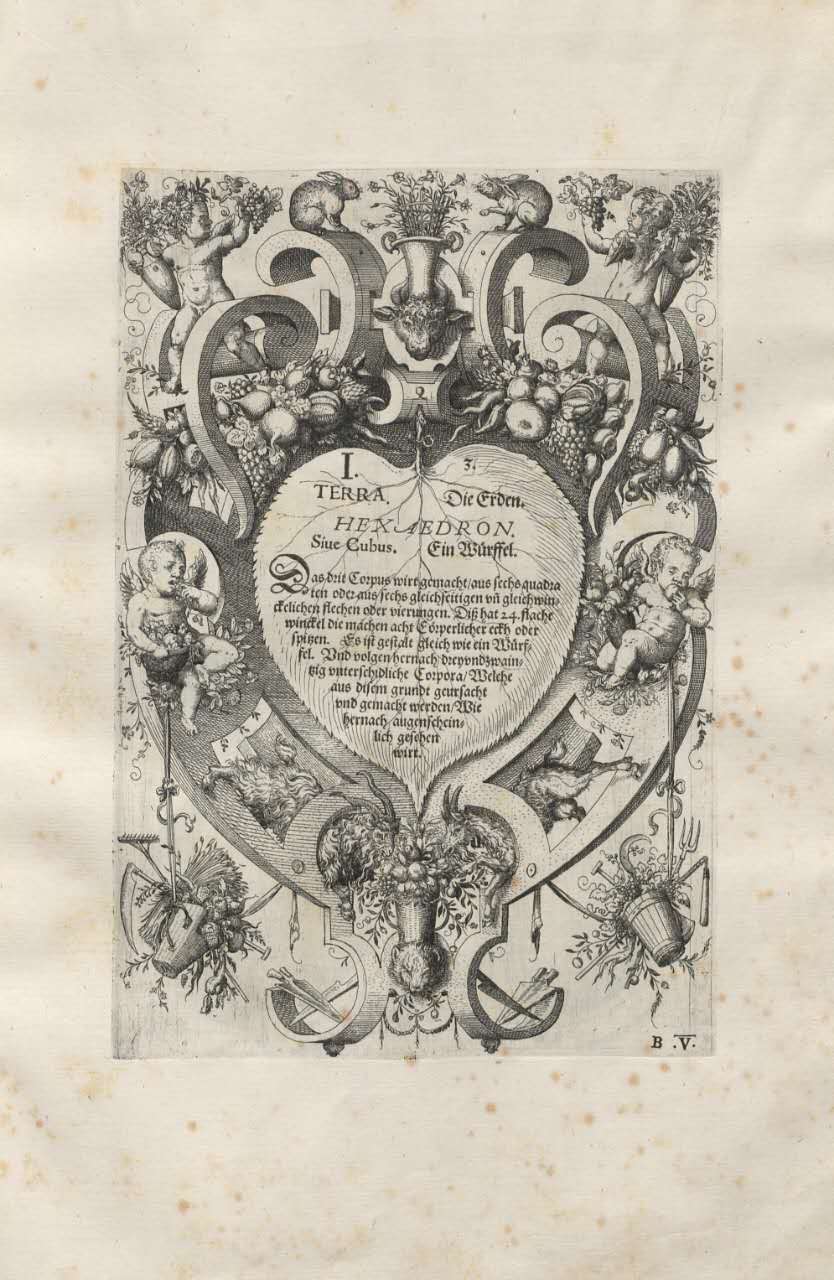 9.
I. 3.
TERRA. Die Erden.
HEXAEDRON.
Siue Cubus. Ein Würffel.
Das drit Corpus wirt gemacht/aus sechs quadra
ten oder aus sechs gleichseitigen vñ gleichwin-
ckelichen flechen oder vierungen. Diß hat 24. flache
winckel die machen acht Cörperlicher eckh oder
spitzen. Es ist gestalt gleich wie ein Würf-
fel. Vnd volgen hernach dreyundzwain-
tzig vnterschidliche Corpora/Welche
aus disem grundt geursacht
vnd gemacht werden/Wie
hernach/augenschein-
lich gesehen
wirt.
B .V.